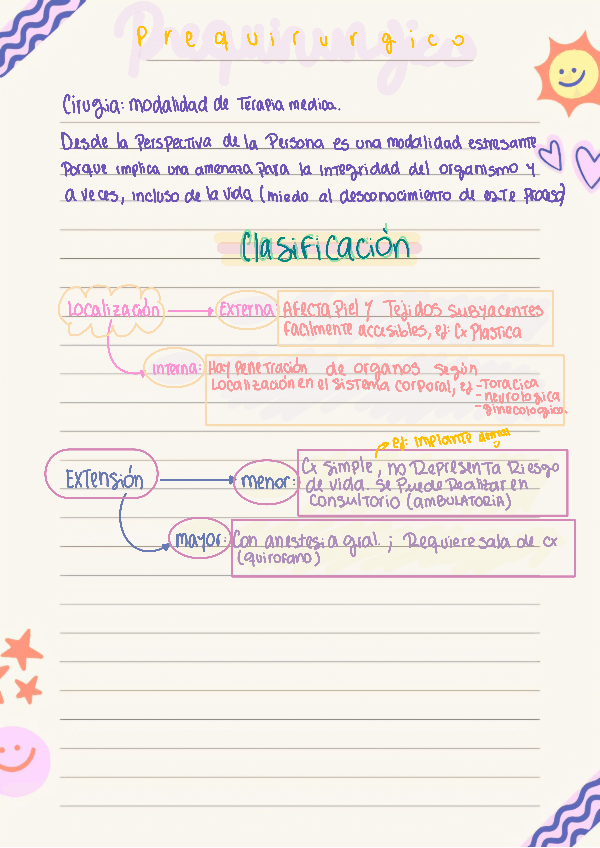 Prequirurgico
Cirugia: modalidad de Terapia medica.
Desde la Perspectiva de la Persona es una modalidad estresante
Porque implica una amenaza Para la integridad del organismo y
a veces, incluso de la vida (miedo al desconocimiento de este Proceso)
Clasificación
Localización → Externa: Afecta Piel y Tejidos subyacentes
facilmente accesibles, ej: Cx Plastica
interna: Hay Penetración de organos según
Localización en el sistema corporal, ej - Toracica
- neurologica
- ginecologica.
ej: implante dental
Extensión → menor: Cx simple, no Representa Riesgo
de vida. Se Puede Realizar en
consultorio (ambulatoria)
mayor: Con anestesia gral. ; Requiere sala de cx
(quirofano)